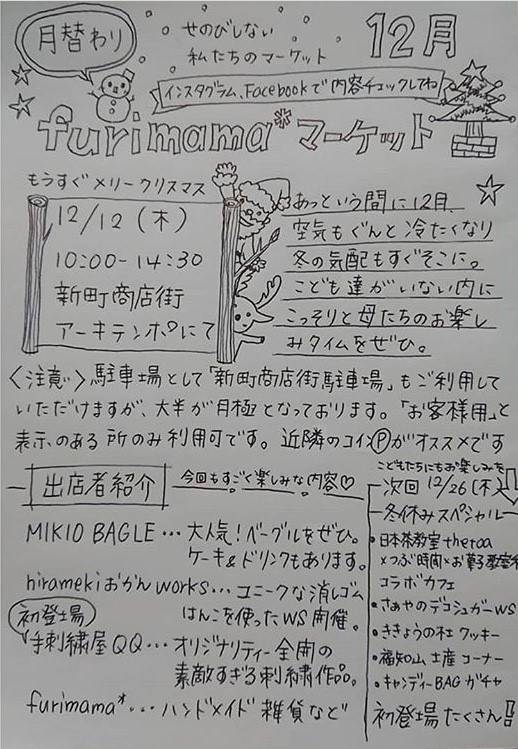 月替わり
せのびしない
私たちのマーケット
12月
インスタグラム、Facebookで内容チェックしてね
furimama*マーケット
もうすぐメリークリスマス
12/12(木)
10:00-14:30
新町商店街
アーキテンポにて
あっという間に12月、
空気もぐんと冷たくなり
冬の気配もすぐそこに。
こども達がいない内に
こっそりと母たちのお楽し
みタイムをぜひ。
〈注意〉駐車場として「新町商店街駐車場」もご利用して
いただけますが、大半が月極となっております。「お客様用」と
表示のある所のみ利用可です。近隣のコインⓅがオススメです
出店者紹介
今回もすごく楽しみな内容♡
MIKIO BAGLE…大人気!ベーグルをぜひ。
ケーキ&ドリンクもあります。
hiramekiおかんworks…ユニークな消しゴム
はんこを使ったWS開催。
初登場
手刺繍屋QQ…オリジナリティー全開の
素敵すぎる刺繍作品。
furimama*…ハンドメイド雑貨など
こどもたちにもお楽しみを
次回12/26(木)
冬休みスペシャル
・日本茶教室thetaa
×つぶ時間×お菓子教室
コラボカフェ
・さぁやのデコシュガーWS
・ききょうの杜クッキー
・福知山土産コーナー
・キャンディーBAGガチャ
初登場たくさん!!